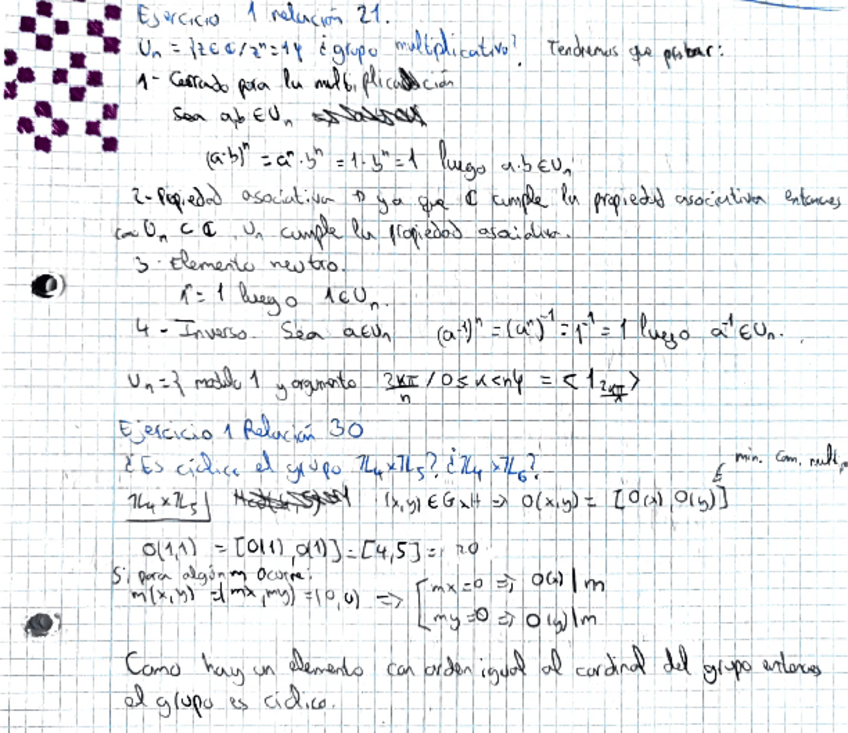 Ejercicio 1 relación 21.
Un = {z ∈ ℂ / zⁿ = 1} ¿grupo multiplicativo? Tendremos que probar:
1- Cerrado para la multiplicación
Sea a,b ∈ Un
(a·b)ⁿ = aⁿ·bⁿ = 1·bⁿ = 1 luego a·b ∈ Un
2- Propiedad asociativa ya que ℂ cumple la propiedad asociativa entonces
Un ⊂ ℂ, Un cumple la propiedad asociativa.
3- Elemento neutro.
1ⁿ = 1 luego 1 ∈ Un.
4- Inverso. Sea a ∈ Un (a⁻¹)ⁿ = (aⁿ)⁻¹ = 1⁻¹ = 1 luego a⁻¹ ∈ Un.
Un = { modulo 1 y argumento 2kπ/n / 0 ≤ k < n} = <1>
Ejercicio 1 Relación 30
¿Es cíclico el grupo ℤ₄ × ℤ₅? ¿ℤ₄ × ℤ₆?
min. com. mult.
ℤ₄ × ℤ₅ (x,y) ∈ G×H ⇒ O(x,y) = [O(x), O(y)]
O(1,1) = [O(1), O(1)] = [4,5] = 20
Si para algún m ocurre:
m(x,y) = (mx, my) = (0,0) ⇒ [mx = 0 ⇒ O(x) | m
my = 0 ⇒ O(y) | m
Como hay un elemento con orden igual al cardinal del grupo entonces
el grupo es cíclico.